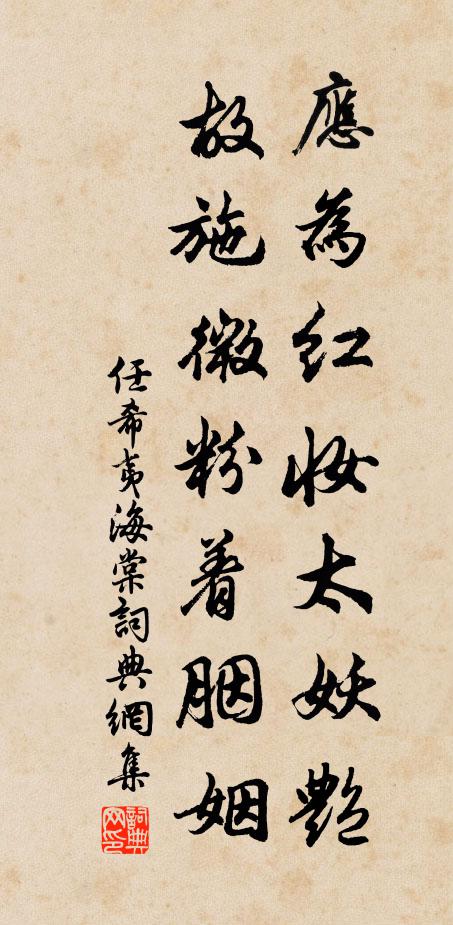 應為紅妝太妖艷
故施微粉着胭姻
任希夷海棠詞典網集
詞典網印